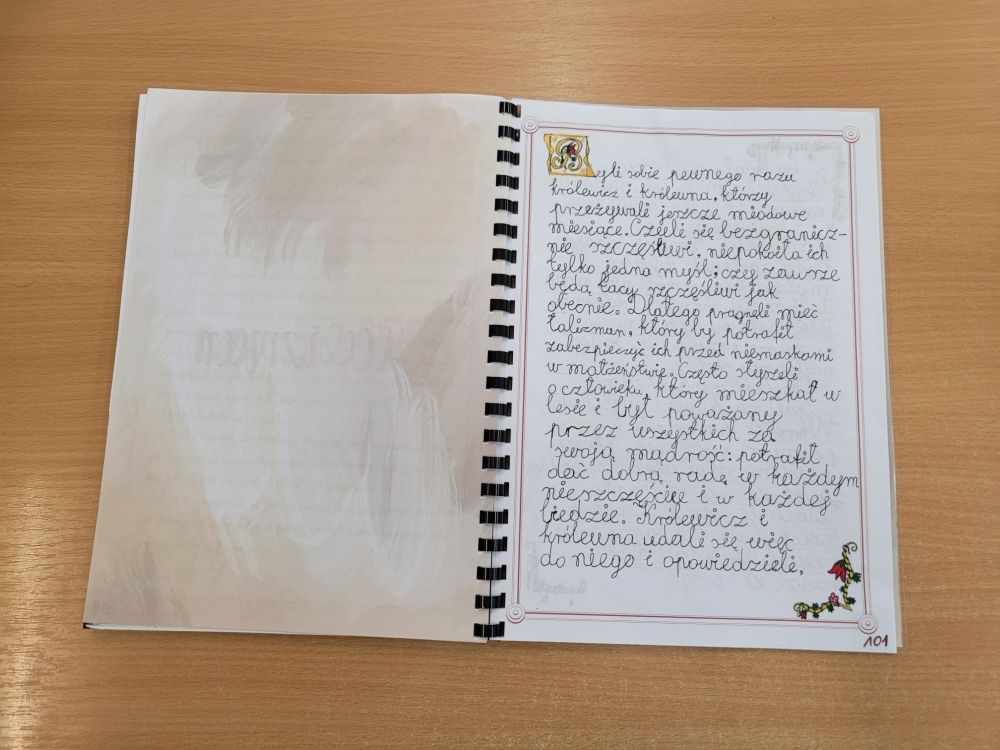 Byli sobie pewnego razu
królewicz i królewna, którzy
przeżywali jeszcze miodowe
miesiące. Czuli się bezgranicz-
nie szczęśliwi, niepokoiła ich
tylko jedna myśl; czy zawsze
będą tacy szczęśliwi jak
obecnie. Dlatego pragnęli mieć
talizman, który by potrafił
zabezpieczyć ich przed niesnaskami
w małżeństwie. Często słyszeli
o człowieku, który mieszkał w
lesie i był poważany
przez wszystkich za
swoją mądrość: potrafił
dać dobrą radę w każdym
nieszczęściu i w każdej
biedzie. Królewicz i
królewna udali się więc
do niego i opowiedzieli,
101